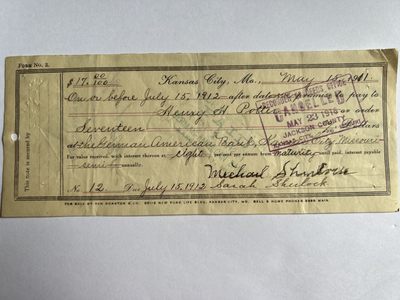 FORM NO. 2.
$17.00/100 Kansas City, Mo., May 15, 1911.
On or before July 15, 1912 after date we promise to pay to
Henry H. Potter or order
Seventeen Dollars
at the German American Bank, Kansas City, Missouri
For value received, with interest thereon at eight per cent per annum from maturity until paid, interest payable
semi annually.
Michael Shurlock
No 12 Due July 15, 1912 Sarah Shurlock
This note is secured by
RECORDER OF DEEDS OFFICE
CANCELLED
MAY 23 1916
JACKSON COUNTY
KANSAS CITY, MO.